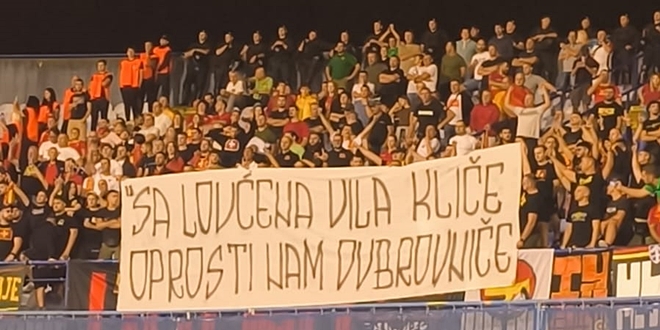 "SA LOVĆENA VILA KLIČE
OPROSTI NAM DUBROVNIČE